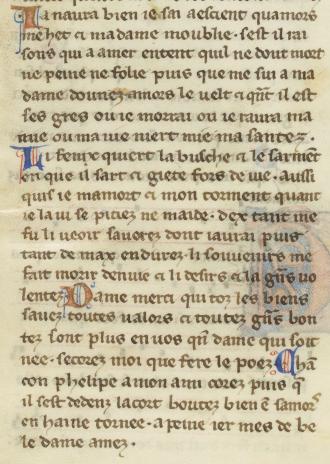 Ia naura bien ie sai aescient quamors
me het et ma dame moublie · sest il rai
sons qui a amer entent quil ne dout mort
ne peine ne folie puis que me sui a ma
dame donnez · amors le uelt et qñt il est
ses gres ou ie morrai ou ie raura ma
mie ou ma uie niert mie ma santez ·
Li fenix quiert la busche et le sarment
en que il sart et giete fors de uie · aussi
quis ie ma mort et mon torment quant
ie la ui se pitiez ne maide · dex tant me
fu li ueoir sauerez dont iaurai puis
tant de max endurez li souuenirs me
fait morir denuie et li desirs et la gñs uo
lentez Dame merci qui toz les biens
sauez toutes ualors et toutez gñs bon
tez sont plus en uos qñ dame qui soit
nee · secorez moi que fere le poez Chã
con phelipe a mon ami corez puis q̃
il sest dedenz la cort boutez bien ẽ samors
en haine tornee · a peine iert mes de be
le dame amez ·